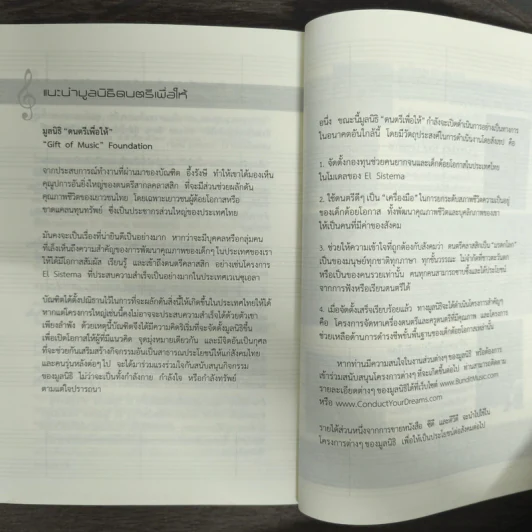 แนะนำมูลนิธิดนตรีเพื่อให้
มูลนิธิ "ดนตรีเพื่อให้"
"Gift of Music" Foundation
จากประสบการณ์ทำงานที่ผ่านมาของบัณฑิต อึ้งรังษี ทำให้เขาได้มองเห็น
คุณูปการอันยิ่งใหญ่ของดนตรีสากลคลาสสิก ที่จะมีส่วนช่วยผลักดัน
คุณภาพชีวิตของเยาวชนไทย โดยเฉพาะเยาวชนผู้ด้อยโอกาสหรือ
ขาดแคลนทุนทรัพย์ ซึ่งเป็นประชากรส่วนใหญ่ของประเทศไทย
มันคงจะเป็นเรื่องที่น่ายินดีเป็นอย่างมาก หากว่าจะมีบุคคลหรือกลุ่มคน
ที่เล็งเห็นถึงความสำคัญของการพัฒนาคุณภาพของเด็กๆ ในประเทศของเรา
ให้ได้มีโอกาสสัมผัส เรียนรู้ และเข้าถึงดนตรีคลาสสิก อย่างเช่นโครงการ
El Sistema ที่ประสบความสำเร็จเป็นอย่างมากในประเทศเวเนซุเอลา
บัณฑิตได้ตั้งปณิธานไว้ในการที่จะผลักดันสิ่งนี้ให้เกิดขึ้นในประเทศไทยให้ได้
หากแต่โครงการใหญ่เช่นนี้คงไม่อาจจะประสบความสำเร็จได้ด้วยตัวเขา
เพียงลำพัง ด้วยเหตุนี้บัณฑิตจึงได้มีความคิดริเริ่มที่จะจัดตั้งมูลนิธิขึ้น
เพื่อเปิดโอกาสให้ผู้ที่มีแนวคิด จุดมุ่งหมายเดียวกัน และมีจิตอันเป็นกุศล
ที่จะช่วยกันเสริมสร้างกิจกรรมอันเป็นสาธารณประโยชน์ให้แก่สังคมไทย
และคนรุ่นหลังต่อๆ ไป จะได้มาร่วมแรงร่วมใจกันสนับสนุนกิจกรรม
ของมูลนิธิ ไม่ว่าจะเป็นทั้งกำลังกาย กำลังใจ หรือกำลังทรัพย์
ตามแต่ใจปรารถนา
อนึ่ง ขณะนี้มูลนิธิ "ดนตรีเพื่อให้" กำลังจะเปิดดำเนินการอย่างเป็นทางการ
ในอนาคตอันใกล้นี้ โดยมีวัตถุประสงค์ในการดำเนินงานโดยสังเขป คือ
1. จัดตั้งกองทุนช่วยคนยากจนและเด็กด้อยโอกาสในประเทศไทย
ในโมเดลของ El Sistema
2. ใช้ดนตรีดีๆ เป็น "เครื่องมือ" ในการยกระดับสภาพชีวิตความเป็นอยู่
ของเด็กด้อยโอกาส ทั้งพัฒนาคุณภาพชีวิตและบุคลิกภาพของเขา
ให้เป็นคนที่มีค่าของสังคม
3. ช่วยให้ความเข้าใจที่ถูกต้องกับสังคมว่า ดนตรีคลาสสิกเป็น "มรดกโลก"
เป็นของมนุษย์ทุกชาติทุกภาษา ทุกชั้นวรรณะ ไม่จำกัดที่ชาวตะวันตก
หรือเป็นของคนรวยเท่านั้น คนทุกคนสามารถซาบซึ้งและได้ประโยชน์
จากการฟังหรือเรียนดนตรีได้
4. เมื่อจัดตั้งเสร็จเรียบร้อยแล้ว ทางมูลนิธิจะได้ดำเนินโครงการสำคัญ
คือ โครงการจัดหาเครื่องดนตรีและครูดนตรีที่มีคุณภาพ และโครงการ
ช่วยเหลือด้านการดำรงชีพขั้นพื้นฐานของเด็กด้อยโอกาสเหล่านั้น
หากท่านมีความสนใจในงานส่วนต่างๆ ของมูลนิธิ หรือต้องการ
เข้าร่วมสนับสนุนโครงการต่างๆ ที่จะเกิดขึ้นต่อไป ท่านสามารถติดตาม
รายละเอียดต่างๆ ของมูลนิธิได้ที่เว็บไซต์ www.BunditMusic.com
หรือ www.ConductYourDreams.com
รายได้ส่วนหนึ่งจากการขายหนังสือ ซีดี และดีวีดี จะนำไปใช้ใน
โครงการต่างๆ ของมูลนิธิ เพื่อให้เป็นประโยชน์ต่อสังคมต่อไป